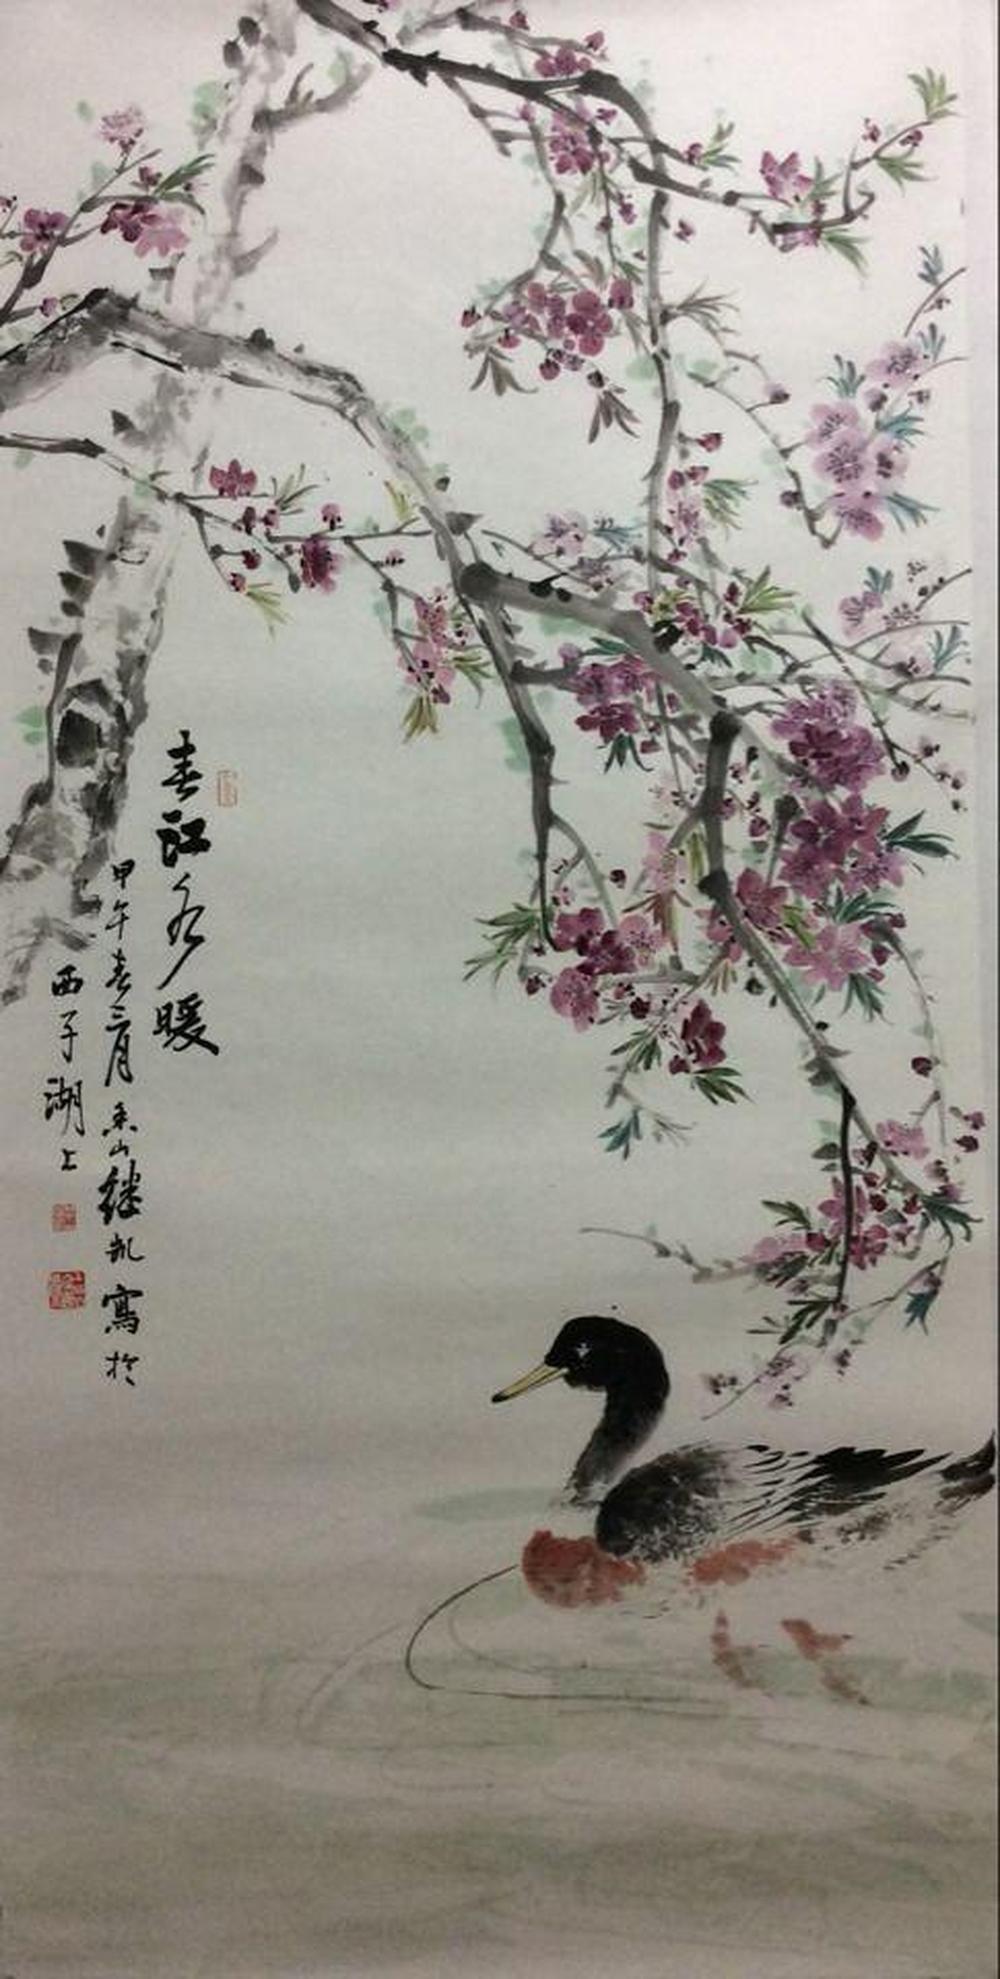 春江水暖
甲午春三月香山继凯寫於
西子湖上